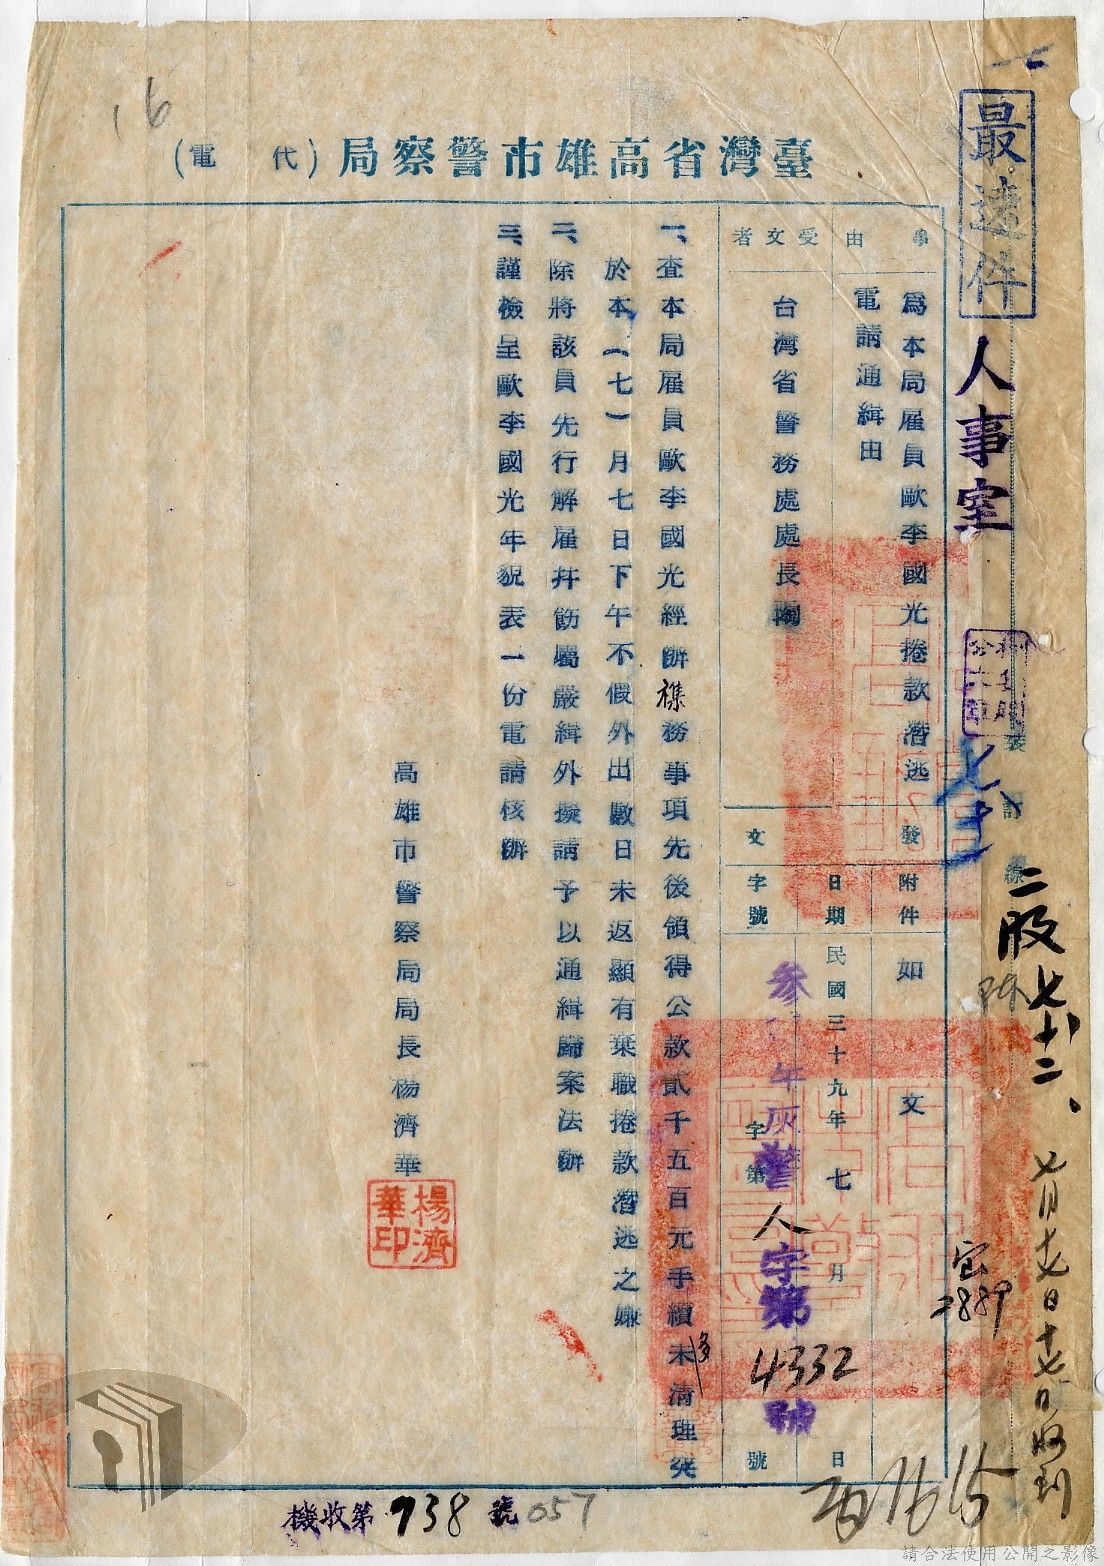 16
臺灣省高雄市警察局（代電）
最速件
人事室
事由
為本局雇員歐李國光捲款潛逃
電請通緝由
受文者
台灣省警務處處長陶
發文
附件
如文
日期
民國三十九年七月日
字號
字第號
午灰警人字第4332號
一、查本局雇員歐李國光經辦襍務事項先後領得公款貳千五百元手續多未清理突
於本（七）月七日下午不假外出數日未返顯有棄職捲款潛逃之嫌
二、除將該員先行解雇幷飭屬嚴緝外擬請予以通緝歸案法辦
三、謹檢呈歐李國光年貌表一份電請核辦
高雄市警察局局長楊濟華
楊濟華印
裝訂線
二股
七月十七日十七日收到
2889
機收第738號057
請合法使用公開之影像